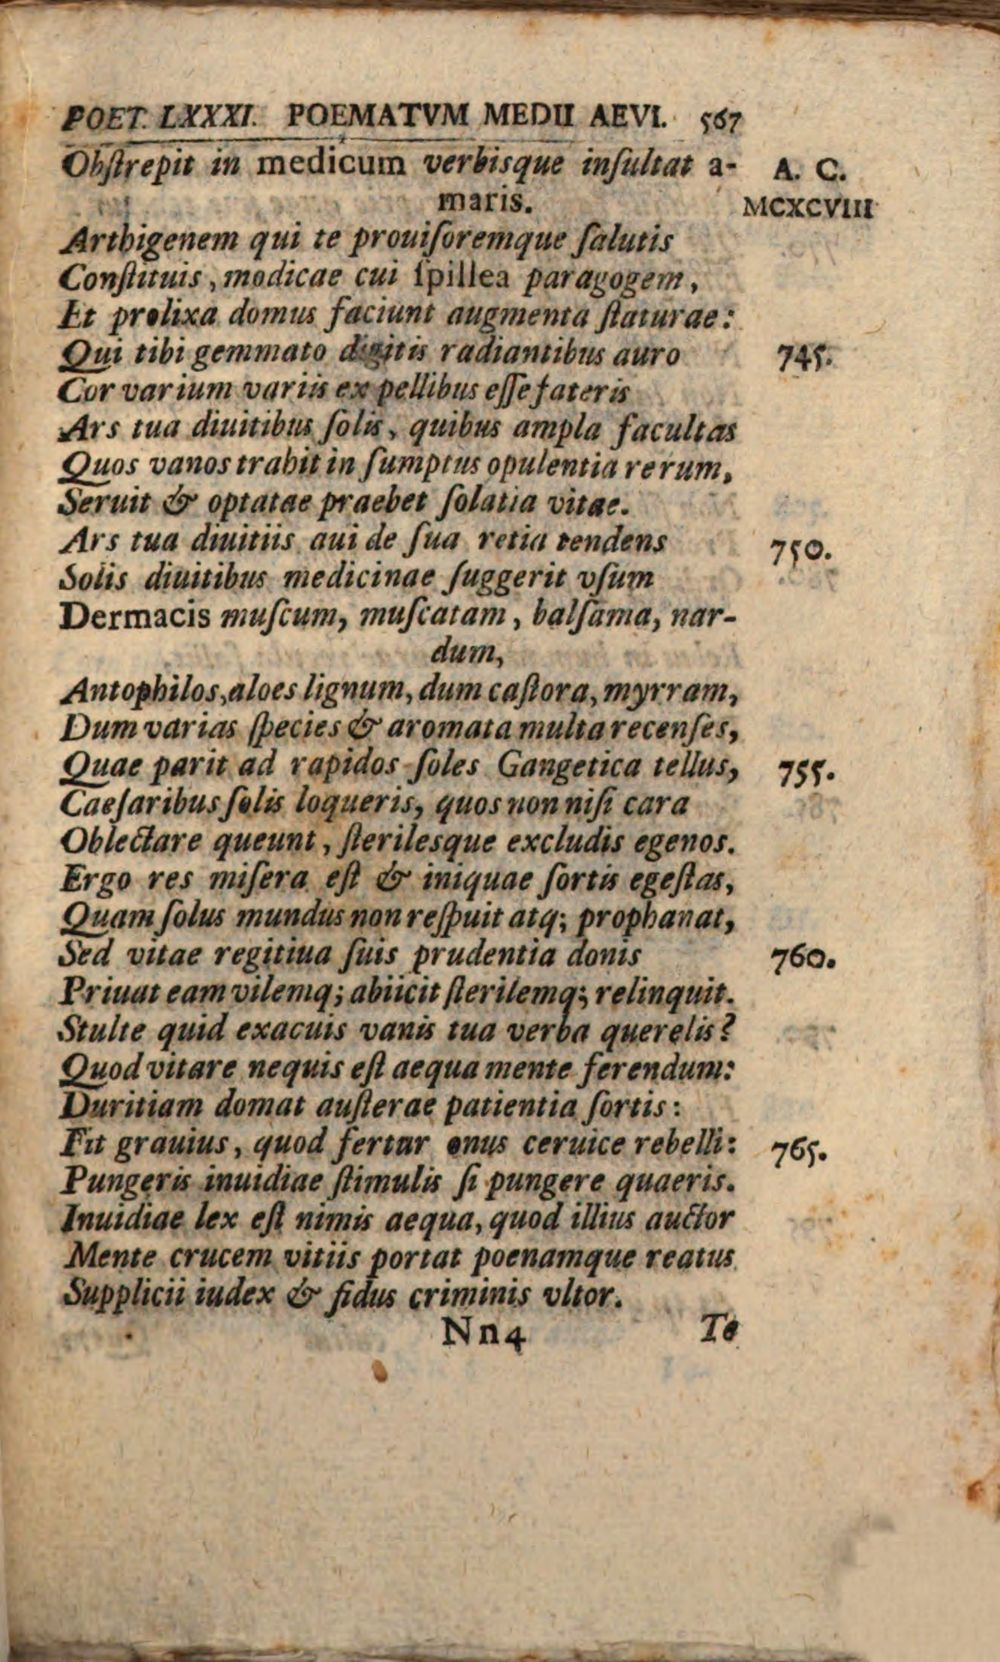 POET. LXXXI. POEMATVM MEDII AEVI. 567
Obſtrepit in medicum verbisque inſultat a- A. C.
maris. MCXCVIII
Arthigenem qui te prouiſoremque ſalutis
Conſtituis, modicae cui ſpillea paragogem,
Et prolixa domus faciunt augmenta ſtaturae:
Qui tibi gemmato digitis radiantibus auro 745.
Cor varium variis ex pellibus eſſe fateris
Ars tua diuitibus ſolis, quibus ampla facultas
Quos vanos trahit in ſumptus opulentia rerum,
Seruit & optatae praebet ſolatia vitae.
Ars tua diuitiis aui de ſua retia tendens 750.
Solis diuitibus medicinae ſuggerit vſum
Dermacis muſcum, muſcatam, balſama, nar-
dum,
Antophilos, aloes lignum, dum caſtora, myrram,
Dum varias ſpecies & aromata multa recenſes,
Quae parit ad rapidos ſoles Gangetica tellus, 755.
Caeſaribus ſolis loqueris, quos non niſi cara
Oblectare queunt, ſterilesque excludis egenos.
Ergo res miſera eſt & iniquae ſortis egeſtas,
Quam ſolus mundus non reſpuit atq; prophanat,
Sed vitae regitiua ſuis prudentia donis 760.
Priuat eam vilemq; abiicit ſterilemq; relinquit.
Stulte quid exacuis vanis tua verba querelis?
Quod vitare nequis eſt aequa mente ferendum:
Duritiam domat auſterae patientia ſortis:
Fit grauius, quod fertur onus ceruice rebelli: 765.
Pungeris inuidiae ſtimulis ſi pungere quaeris.
Inuidiae lex eſt nimis aequa, quod illius auctor
Mente crucem vitiis portat poenamque reatus
Supplicii iudex & fidus criminis vltor.
Nn4 Te